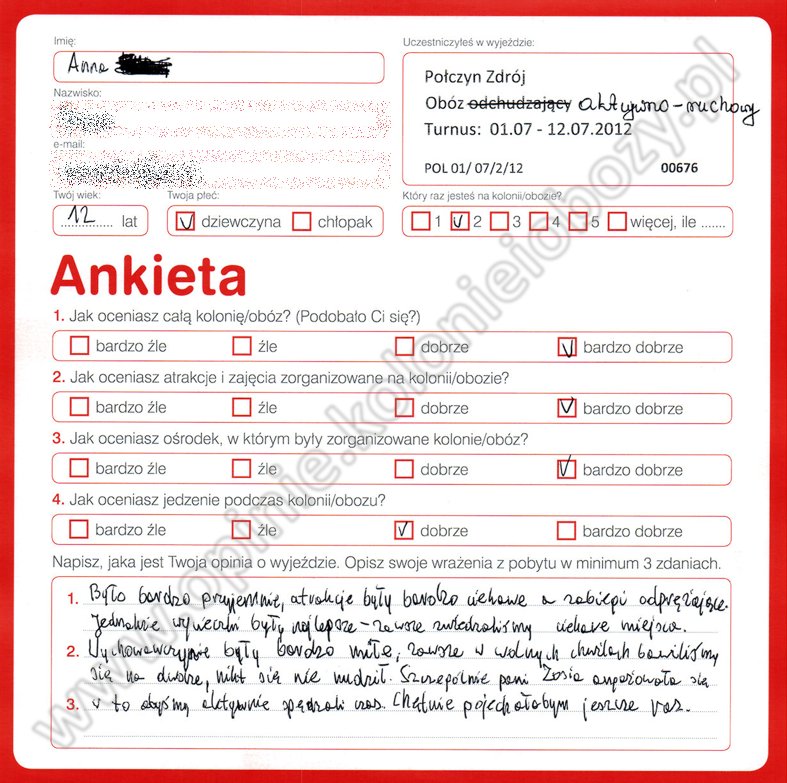 Imię:
Anna
Nazwisko:
e-mail:
Twój wiek:
12 lat
Twoja płeć:
dziewczyna chłopak
Uczestniczyłeś w wyjeździe:
Połczyn Zdrój
Obóz odchudzający aktywno-ruchowy
Turnus: 01.07 - 12.07.2012
POL 01/ 07/2/12 00676
Który raz jesteś na kolonii/obozie?
1 2 3 4 5 więcej, ile .......
Ankieta
1. Jak oceniasz całą kolonię/obóz? (Podobało Ci się?)
bardzo źle źle dobrze bardzo dobrze
2. Jak oceniasz atrakcje i zajęcia zorganizowane na kolonii/obozie?
bardzo źle źle dobrze bardzo dobrze
3. Jak oceniasz ośrodek, w którym były zorganizowane kolonie/obóz?
bardzo źle źle dobrze bardzo dobrze
4. Jak oceniasz jedzenie podczas kolonii/obozu?
bardzo źle źle dobrze bardzo dobrze
Napisz, jaka jest Twoja opinia o wyjeździe. Opisz swoje wrażenia z pobytu w minimum 3 zdaniach.
1. Było bardzo przyjemnie, atrakcje były bardzo ciekawe a zabiegi odprężające.
Jednakże wycieczki były najlepsze - zawsze zwiedzaliśmy ciekawe miejsca.
2. Wychowawczynie były bardzo miłe, zawsze w wolnych chwilach bawiliśmy
się na dworze, nikt się nie nudził. Szczególnie pani Zosia angażowała się
3. w to abyśmy aktywnie spędzali czas. Chętnie pojechałabym jeszcze raz.
www.opinie.kolonieiobozy.pl